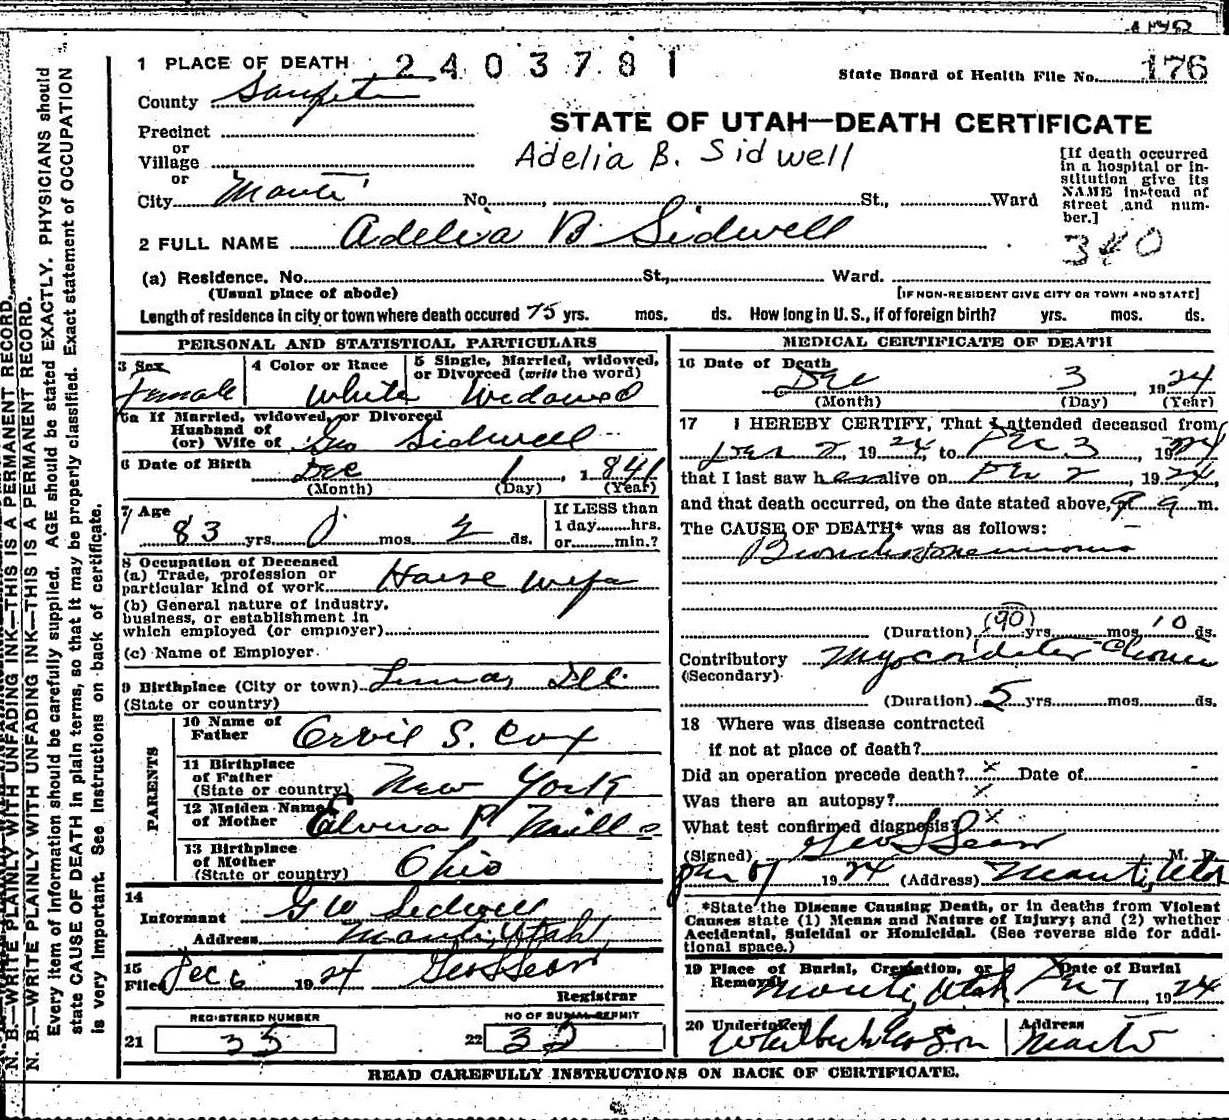 1 PLACE OF DEATH 2403781
State Board of Health File No. 176
County Sanpete
STATE OF UTAH—DEATH CERTIFICATE
Precinct
or
Village
Adelia B. Sidwell
or
City Manti No. , St., Ward
[If death occurred
in a hospital or in-
stitution give its
NAME instead of
street and num-
ber.]
340
2 FULL NAME Adelia B Sidwell
(a) Residence. No. St., Ward.
(Usual place of abode)
[IF NON-RESIDENT GIVE CITY OR TOWN AND STATE]
Length of residence in city or town where death occured 75 yrs. mos. ds. How long in U. S., if of foreign birth? yrs. mos. ds.
PERSONAL AND STATISTICAL PARTICULARS
3 Sex
Female
4 Color or Race
White
5 Single, Married, widowed,
or Divorced (write the word)
Widowed
6a If Married, widowed, or Divorced
Husband of
(or) Wife of Geo Sidwell
6 Date of Birth
Dec 1, 1841
(Month) (Day) (Year)
7 Age
83 yrs. 0 mos. 2 ds.
If LESS than
1 day hrs.
or min.?
8 Occupation of Deceased
(a) Trade, profession or
particular kind of work House wife
(b) General nature of industry,
business, or establishment in
which employed (or employer)
(c) Name of Employer
9 Birthplace (City or town)
(State or country)
PARENTS
10 Name of
Father Orvil S. Cox
11 Birthplace
of Father
(State or country) New York
12 Maiden Name
of Mother Elvira P. Mills
13 Birthplace
of Mother
(State or country) Ohio
14
Informant G W Sidwell
Address Manti, Utah
15
Filed Dec 6 1924
Registrar
REGISTERED NUMBER
21 35
NO OF BURIAL PERMIT
22 35
MEDICAL CERTIFICATE OF DEATH
16 Date of Death
Dec 3 1924
(Month) (Day) (Year)
17 I HEREBY CERTIFY, That I attended deceased from
Dec 2, 1924, to Dec 3, 1924
that I last saw her alive on Dec 2, 1924,
and that death occurred, on the date stated above, 9 a m.
The CAUSE OF DEATH* was as follows:
Bronchopneumonia
(Duration) (90) yrs. mos. 10 ds.
Contributory Myocarditis Chronic
(Secondary)
(Duration) 5 yrs. mos. ds.
18 Where was disease contracted
if not at place of death?
Did an operation precede death? x Date of
Was there an autopsy? x
What test confirmed diagnosis? x
(Signed) M. D.
1924 (Address) Manti, Utah
*State the Disease Causing Death, or in deaths from Violent
Causes state (1) Means and Nature of Injury; and (2) whether
Accidental, Suicidal or Homicidal. (See reverse side for addi-
tional space.)
19 Place of Burial, Cremation, or
Removal Manti, Utah
Date of Burial
Dec 7, 1924
20 Undertaker
Address
Manti
READ CAREFULLY INSTRUCTIONS ON BACK OF CERTIFICATE.
N. B.—WRITE PLAINLY WITH UNFADING INK—THIS IS A PERMANENT RECORD.
N. B.—WRITE PLAINLY WITH UNFADING INK—THIS IS A PERMANENT RECORD.
Every item of information should be carefully supplied. AGE should be stated EXACTLY. PHYSICIANS should
state CAUSE OF DEATH in plain terms, so that it may be properly classified. Exact statement of OCCUPATION
is very important. See instructions on back of certificate.